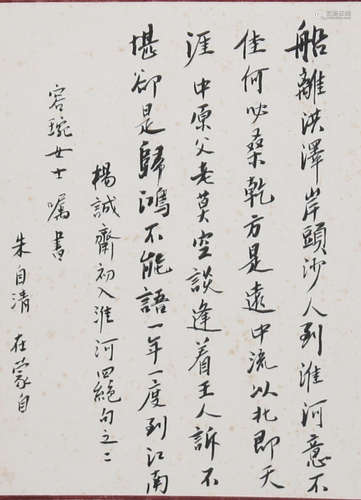 船離洪澤岸頭沙人到淮河意不
佳何必桑乾方是遠中流以北即天
涯中原父老莫空談逢着王人訴不
堪卻是歸鴻不能語一年一度到江南
楊誠齋初入淮河四絕句之二
容琬女士囑書
朱自清在蒙自